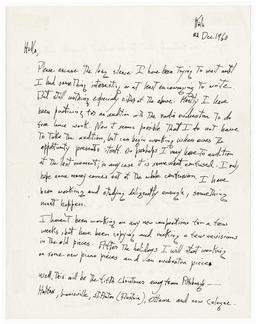 Köln
02 Dec. 1960
Hello,
Please excuse the long silence I have been trying to wait until
I had something interesting or at least encouraging to write
But still nothing especially either of the above. Really I have
been practicing for an audition with the radio orchestra to do
free lance work. Now it seems possible that I do not have
to take the audition, but can begin working when ever the
opportunity presents itself. Or perhaps I may have to audition
at the last moment; in any case it is somewhat confused. I only
hope some money comes out of the whole confusion. I have
been working and studying diligently enough, something
must happen.
I haven't been working on any new compositions for a few
weeks, but have been copying and making a few revisions
in the old pieces. After the holidays I will start working
on some new piano pieces and a new orchestra piece
Well, this will be the fifth Christmas away from Pittsburgh —
Louisville, Ottawa and now Cologne.